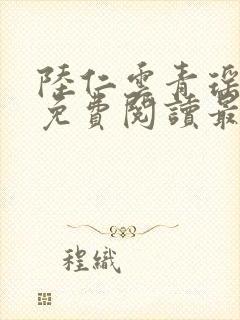 陸仁雲青瑤
免費閱讀最
程織